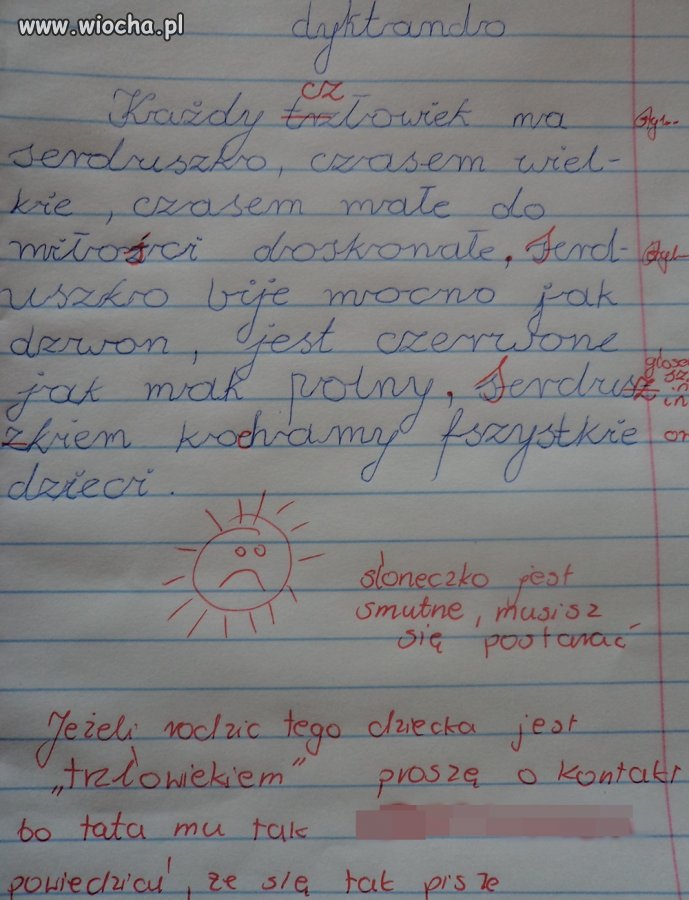 www.wiocha.pl
dyktando
cz
Każdy trzłowiek ma
serduszko, czasem wiel-
kie, czasem małe do
miłości doskonałe. Serd-
uszko bije mocno jak
dzwon, jest czerwone
jak mak polny. Serdusz
zkiem kochamy fszystkie
dzieci.
słoneczko jest
smutne, musisz
się postarać
Jeżeli rodzic tego dziecka jest
„trzłowiekiem" proszę o kontakt
bo tata mu tak
powiedział, że się tak pisze